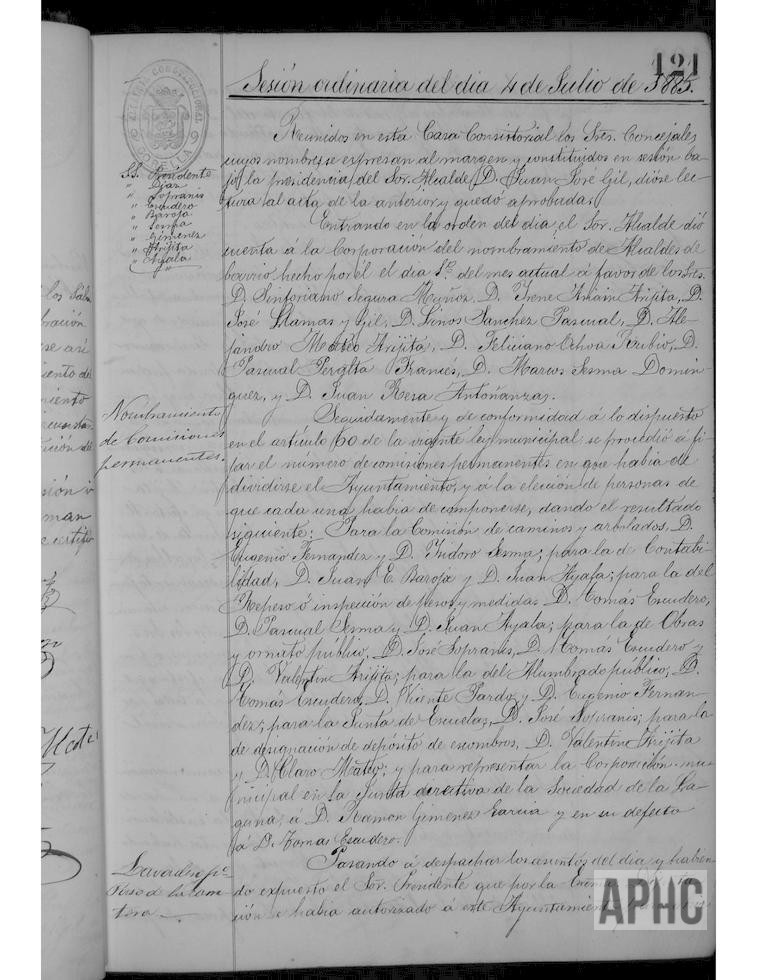 121
Sesión ordinaria del dia 4 de Julio de 1885.
Reunidos en esta Casa Consistorial los Sres. Concejales
cuyos nombres se expresan al margen y constituidos en sesión ba-
jo la presidencia del Sor. Alcalde D. Juan José Gil, dióse lec-
tura al acta de la anterior y quedó aprobada.
Entrando en la orden del dia, el Sor. Alcalde dió
cuenta á la Corporación del nombramiento de Alcaldes de
barrio hecho por él el dia 1º del mes actual á favor de los Sres.
D. Sinforiano Segura Muñoz, D. Irene Arijita, D.
José Llamas y Gil, D. Sanchez Pascual, D. Ale-
jandro Mateo Arijita, D. Feliciano Ochoa Toribio, D.
Pascual Peralta Francés, D. Marcos Sesma Domin-
guez, y D. Juan Resa Antoñanzas.
Seguidamente y de conformidad á lo dispuesto
en el artículo 60 de la vigente ley municipal se procedió á fi-
jar el número de comisiones permanentes en que habia de
dividirse el Ayuntamiento, y á la elección de personas de
que cada una habia de componerse, dando el resultado
siguiente: Para la Comisión de caminos y arbolados, D.
Eugenio Fernandez y D. Isidoro Sesma; para la de Contabi-
lidad, D. Juan E. Baroja y D. Juan Ayala; para la del
Repeso ó inspeción de pesos y medidas D. Tomás Escudero,
D. Pascual Sesma y D. Juan Ayala; para la de Obras
y ornato público, D. José Sopranis, D. Tomás Escudero y
D. Valentin Arijita; para la del Alumbrado público, D.
Tomás Escudero, D. Vicente Pardo y D. Eugenio Fernan-
dez; para la Junta de Escuelas, D. José Sopranis; para la
de designación de depósito de escombros, D. Valentin Arijita
y D. Claro Mateo; y para representar la Corporación mu-
nicipal en la Junta directiva de la Sociedad de la La-
guna, á D. Ramon Gimenez Garcia y en su defecto
á D. Tomas Escudero.
Pasando á despachar los asuntos del dia y habien-
do expuesto el Sor. Presidente que por la Excma.
ción se habia autorizado á este Ayuntamiento
AYUNTº CONSTITUCIONAL
CORELLA
SS. Presidente
" Diaz
" Sopranis
" Escudero
" Baroja
" Sesma
" Gimenez
" Arijita
" Ayala
Nombramiento
de Comisiones
permanentes.
Lavadero pº
APHC